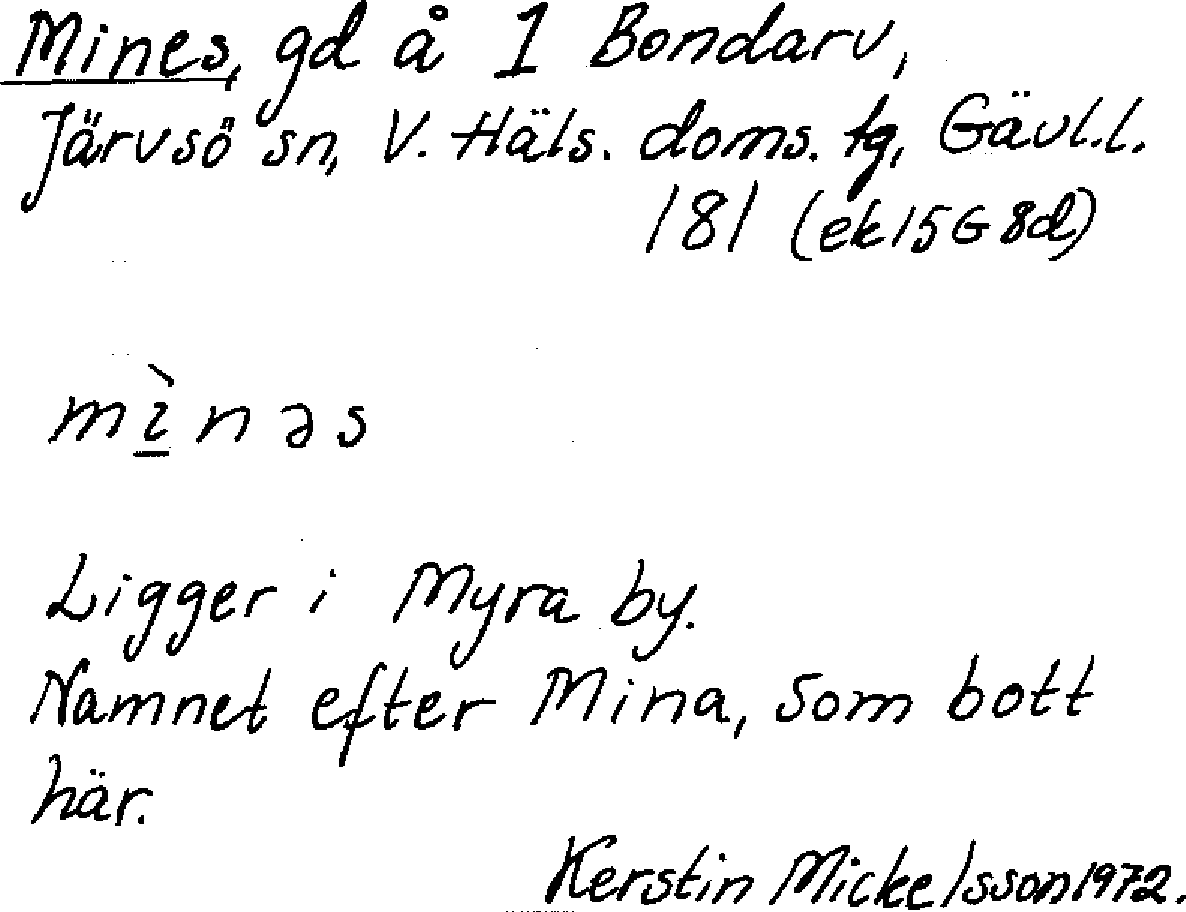 Mines, gd å 1 Bondarv,
Järvsö sn, V. Häls. doms. tg, Gävl.l.
181 (ek 15G 8d)
mì̲nəs
Ligger i Myra by.
Namnet efter Mina, som bott
här.
Kerstin Mickelsson 1972.